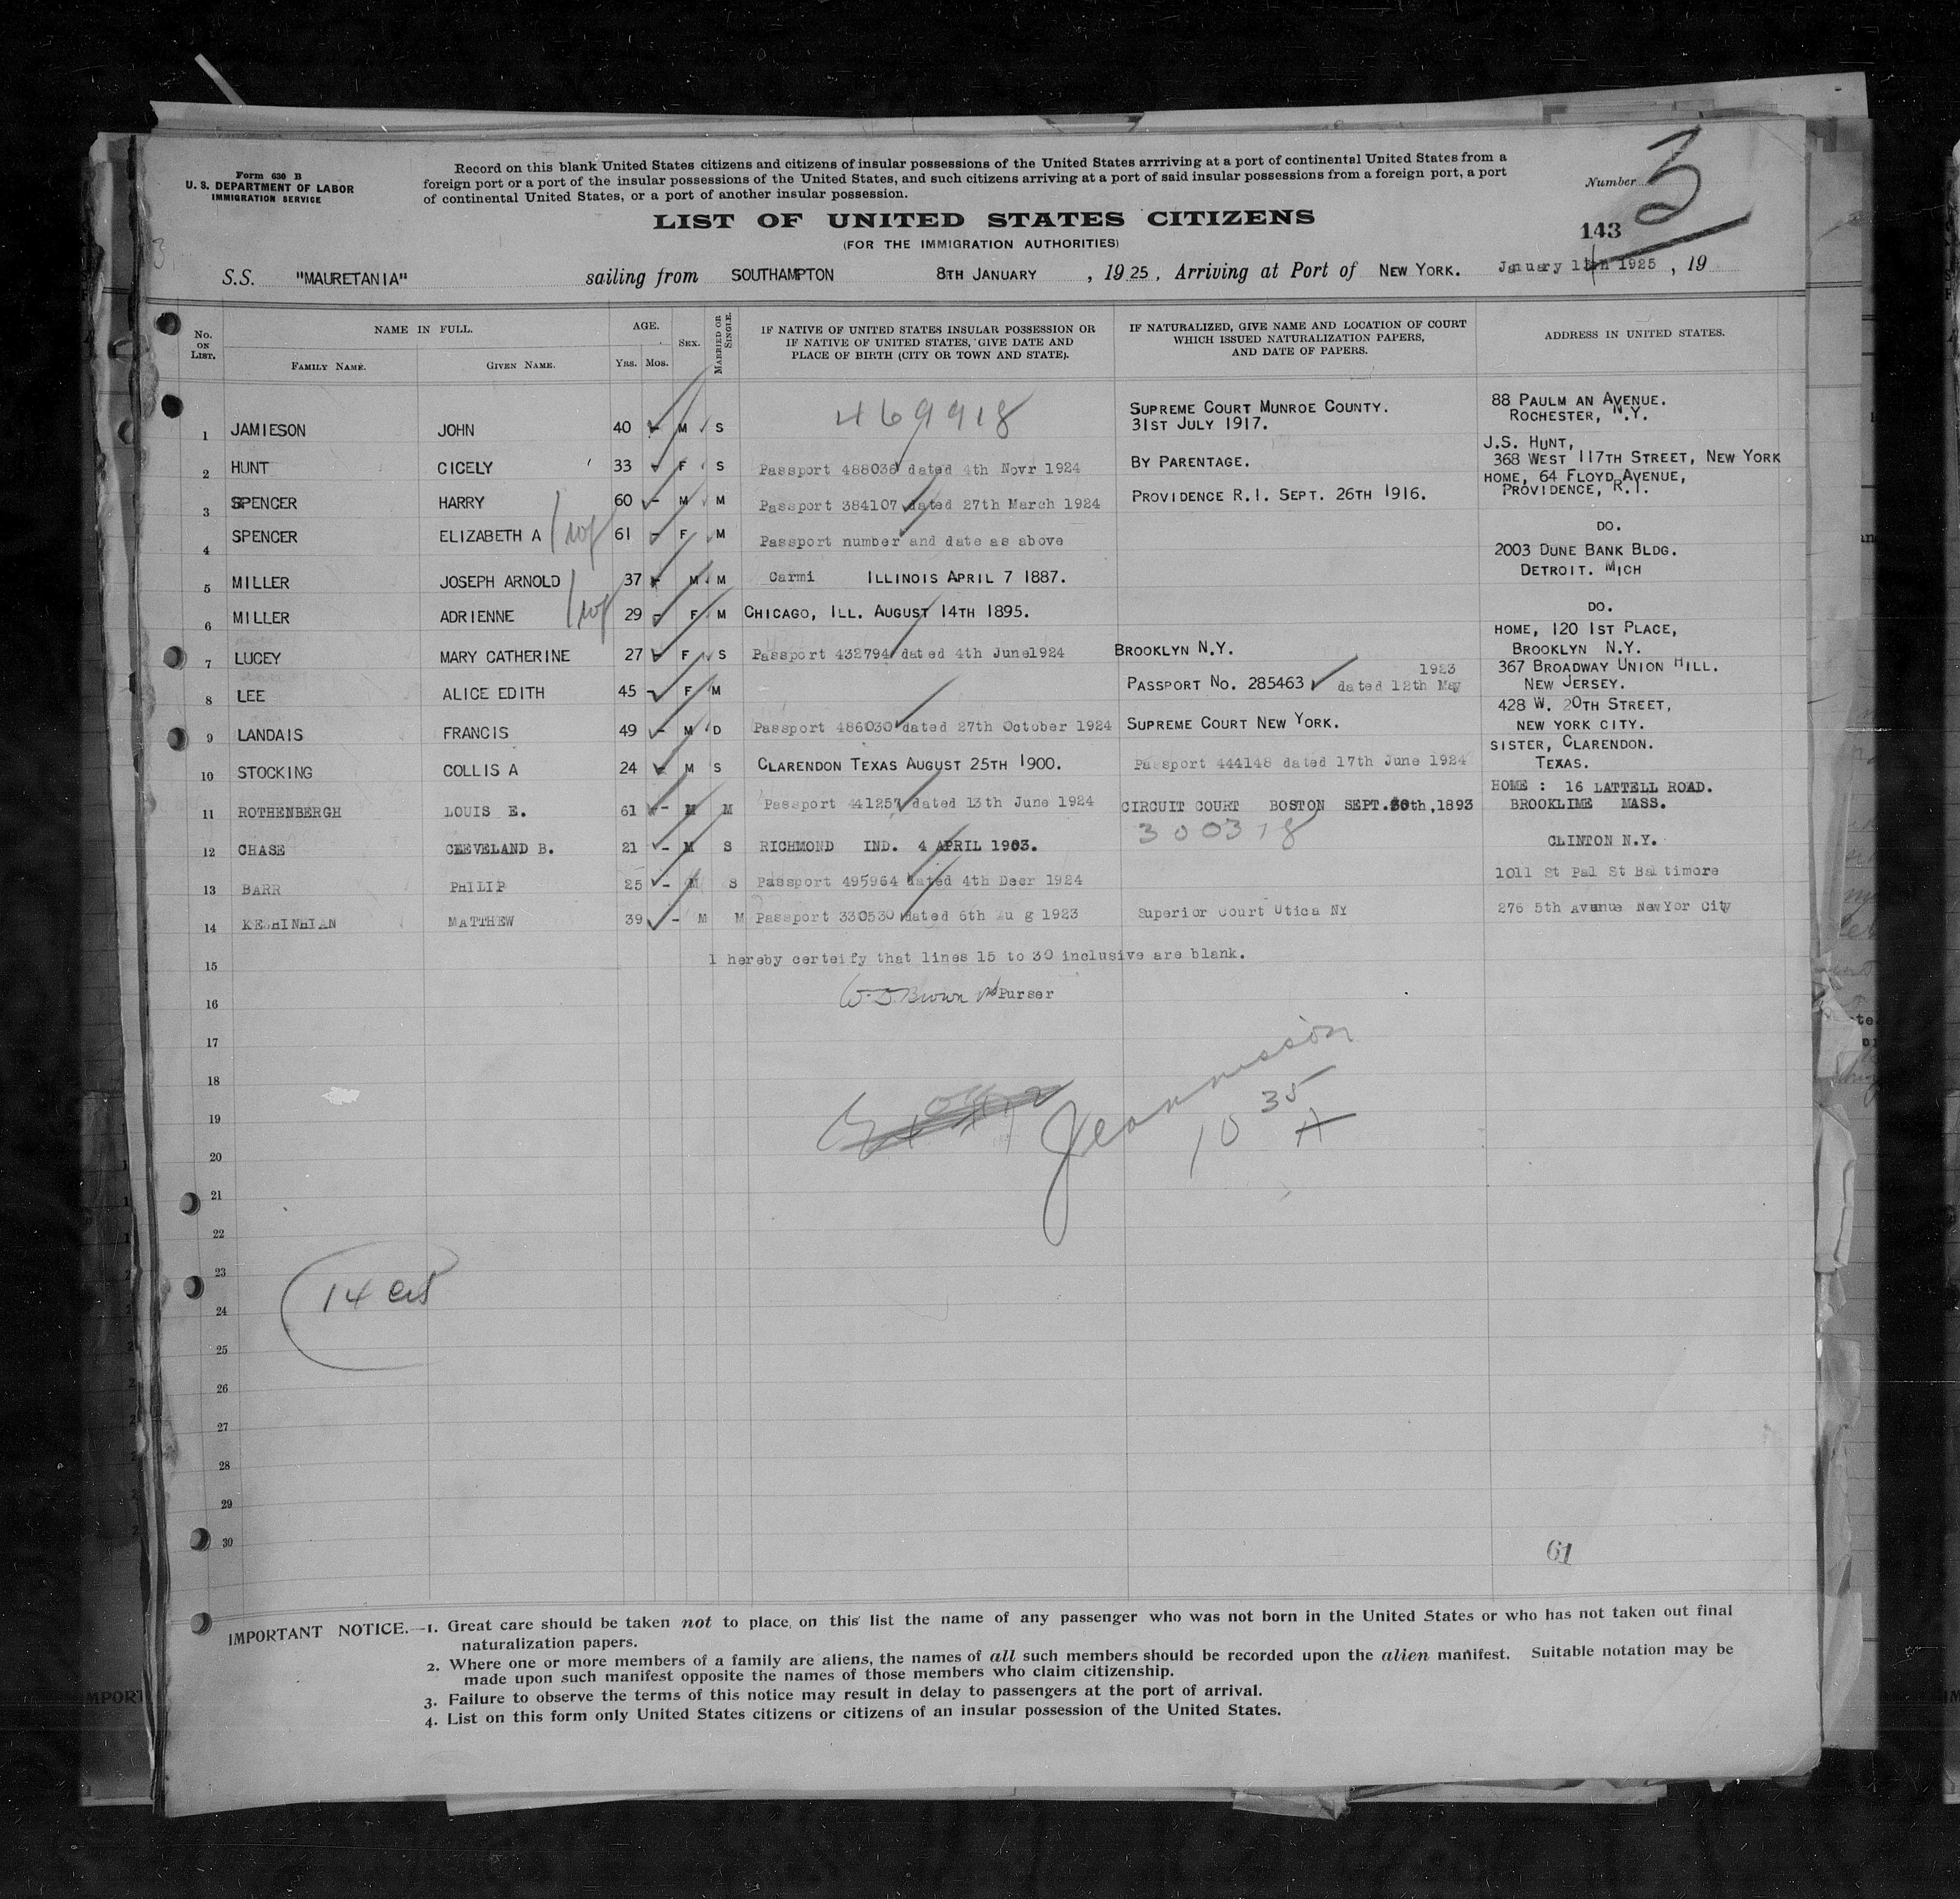 Form 630 B
U. S. DEPARTMENT OF LABOR
IMMIGRATION SERVICE
Record on this blank United States citizens and citizens of insular possessions of the United States arrriving at a port of continental United States from a
foreign port or a port of the insular possessions of the United States, and such citizens arriving at a port of said insular possessions from a foreign port, a port
of continental United States, or a port of another insular possession.
Number 3
LIST OF UNITED STATES CITIZENS
(FOR THE IMMIGRATION AUTHORITIES)
143
S.S. "MAURETANIA" sailing from SOUTHAMPTON 8TH JANUARY , 19 25, Arriving at Port of NEW YORK. January 1 th 1925 , 19
No. ON LIST. NAME IN FULL. AGE. SEX. MARRIED OR SINGLE. IF NATIVE OF UNITED STATES INSULAR POSSESSION OR IF NATIVE OF UNITED STATES, GIVE DATE AND PLACE OF BIRTH (CITY OR TOWN AND STATE). IF NATURALIZED, GIVE NAME AND LOCATION OF COURT WHICH ISSUED NATURALIZATION PAPERS, AND DATE OF PAPERS. ADDRESS IN UNITED STATES.
FAMILY NAME. GIVEN NAME. YRS. MOS.
1 JAMIESON JOHN 40 - M S 469918 SUPREME COURT MUNROE COUNTY. 31ST JULY 1917. 88 PAULM AN AVENUE. ROCHESTER, N.Y.
2 HUNT CICELY 33 - F S Passport 488036 dated 4th Novr 1924 BY PARENTAGE. J.S. HUNT, 368 WEST 117TH STREET, NEW YORK
3 SPENCER HARRY 60 - M M Passport 384107 dated 27th March 1924 PROVIDENCE R.I. SEPT. 26TH 1916. HOME, 64 FLOYD AVENUE, PROVIDENCE, R.I.
4 SPENCER ELIZABETH A 61 - F M Passport number and date as above DO.
5 MILLER JOSEPH ARNOLD 37 - M M Carmi ILLINOIS APRIL 7 1887. 2003 DUNE BANK BLDG. DETROIT. MICH
6 MILLER ADRIENNE 29 - F M CHICAGO, ILL. AUGUST 14TH 1895. DO.
7 LUCEY MARY CATHERINE 27 - F S Passport 432794 dated 4th June1924 BROOKLYN N.Y. HOME, 120 1ST PLACE, BROOKLYN N.Y.
8 LEE ALICE EDITH 45 - F M PASSPORT NO. 285463 dated 12th May 1923 367 BROADWAY UNION HILL. NEW JERSEY.
9 LANDAIS FRANCIS 49 - M D Passport 486030 dated 27th October 1924 SUPREME COURT NEW YORK. 428 W. 20TH STREET, NEW YORK CITY.
10 STOCKING COLLIS A 24 - M S CLARENDON TEXAS AUGUST 25TH 1900. Passport 444148 dated 17th June 1924 SISTER, CLARENDON. TEXAS.
11 ROTHENBERGH LOUIS E. 61 - M M Passport 441257 dated 13th June 1924 CIRCUIT COURT BOSTON SEPT.30th,1893 HOME : 16 LATTELL ROAD. BROOKLIME MASS.
12 CHASE CLEVELAND B. 21 - M S RICHMOND IND. 4 APRIL 1903. 300378 CLINTON N.Y.
13 BARR PHILIP 25 - M S Passport 495964 dated 4th Decr 1924 1011 St Pal St Baltimore
14 KESHINHIAN MATTHEW 39 - M M Passport 330530 dated 6th Au g 1923 Superior Court Utica NY 276 5th Avenue NewYor City
15 I hereby certeify that lines 15 to 30 inclusive are blank.
16 W. D. Brown Purser
17
18
19 Jeannisson
20 10 35 A
21
22
23
24 14 cis
25
26
27
28
29
30 61
IMPORTANT NOTICE.—1. Great care should be taken not to place on this list the name of any passenger who was not born in the United States or who has not taken out final
naturalization papers.
2. Where one or more members of a family are aliens, the names of all such members should be recorded upon the alien manifest. Suitable notation may be
made upon such manifest opposite the names of those members who claim citizenship.
3. Failure to observe the terms of this notice may result in delay to passengers at the port of arrival.
4. List on this form only United States citizens or citizens of an insular possession of the United States.